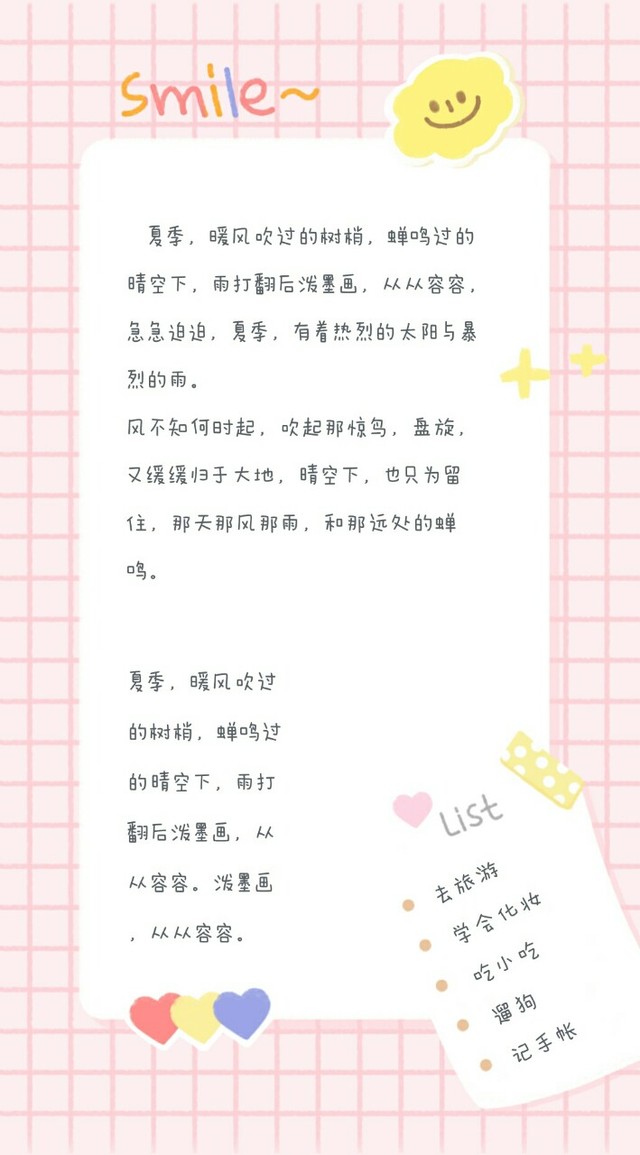 smile~
夏季，暖风吹过的树梢，蝉鸣过的
晴空下，雨打翻后泼墨画，从从容容，
急急迫迫，夏季，有着热烈的太阳与暴
烈的雨。
风不知何时起，吹起那惊鸟，盘旋，
又缓缓归于大地，晴空下，也只为留
住，那天那风那雨，和那远处的蝉
鸣。
夏季，暖风吹过
的树梢，蝉鸣过
的晴空下，雨打
翻后泼墨画，从
从容容。泼墨画
，从从容容。
List
去旅游
学会化妆
吃小吃
遛狗
记手帐